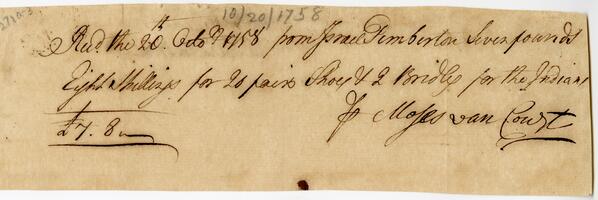 10/20/1758
Recd. the 20th. Octor. 1758 from Israel Pemberton Seven pounds
Eight Shillings for 20 pair Shoes & 2 Bridles for the Indians
£7.8
Moses van Court